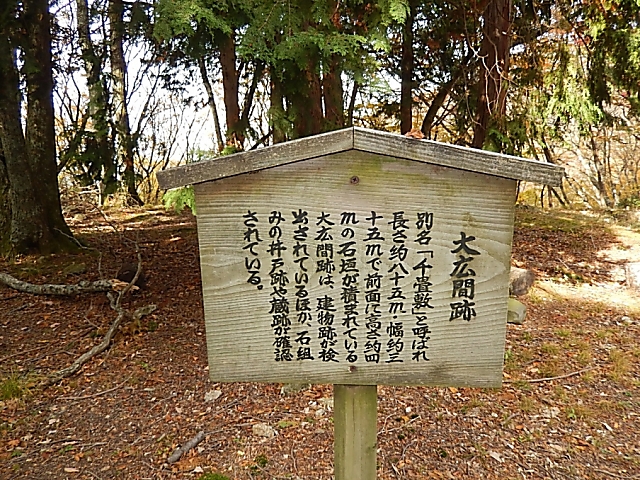 大広間跡
別名「千畳敷」と呼ばれ
長さ約八十五m・幅約三
十五mで前面に高さ約四
mの石垣が積まれている
大広間跡は、建物跡が検
出されているほか、石組
みの井戸跡、蔵跡が確認
されている。